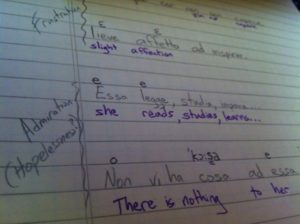 Frustration
ɛ ɛ
Lieve affetto ad
slight affection
e e
Essa legge, studia, impara...
she reads, studies, learns...
Admiration
(Hopelessness)
o e
Non vi ha cosa ad essa
There is nothing to her